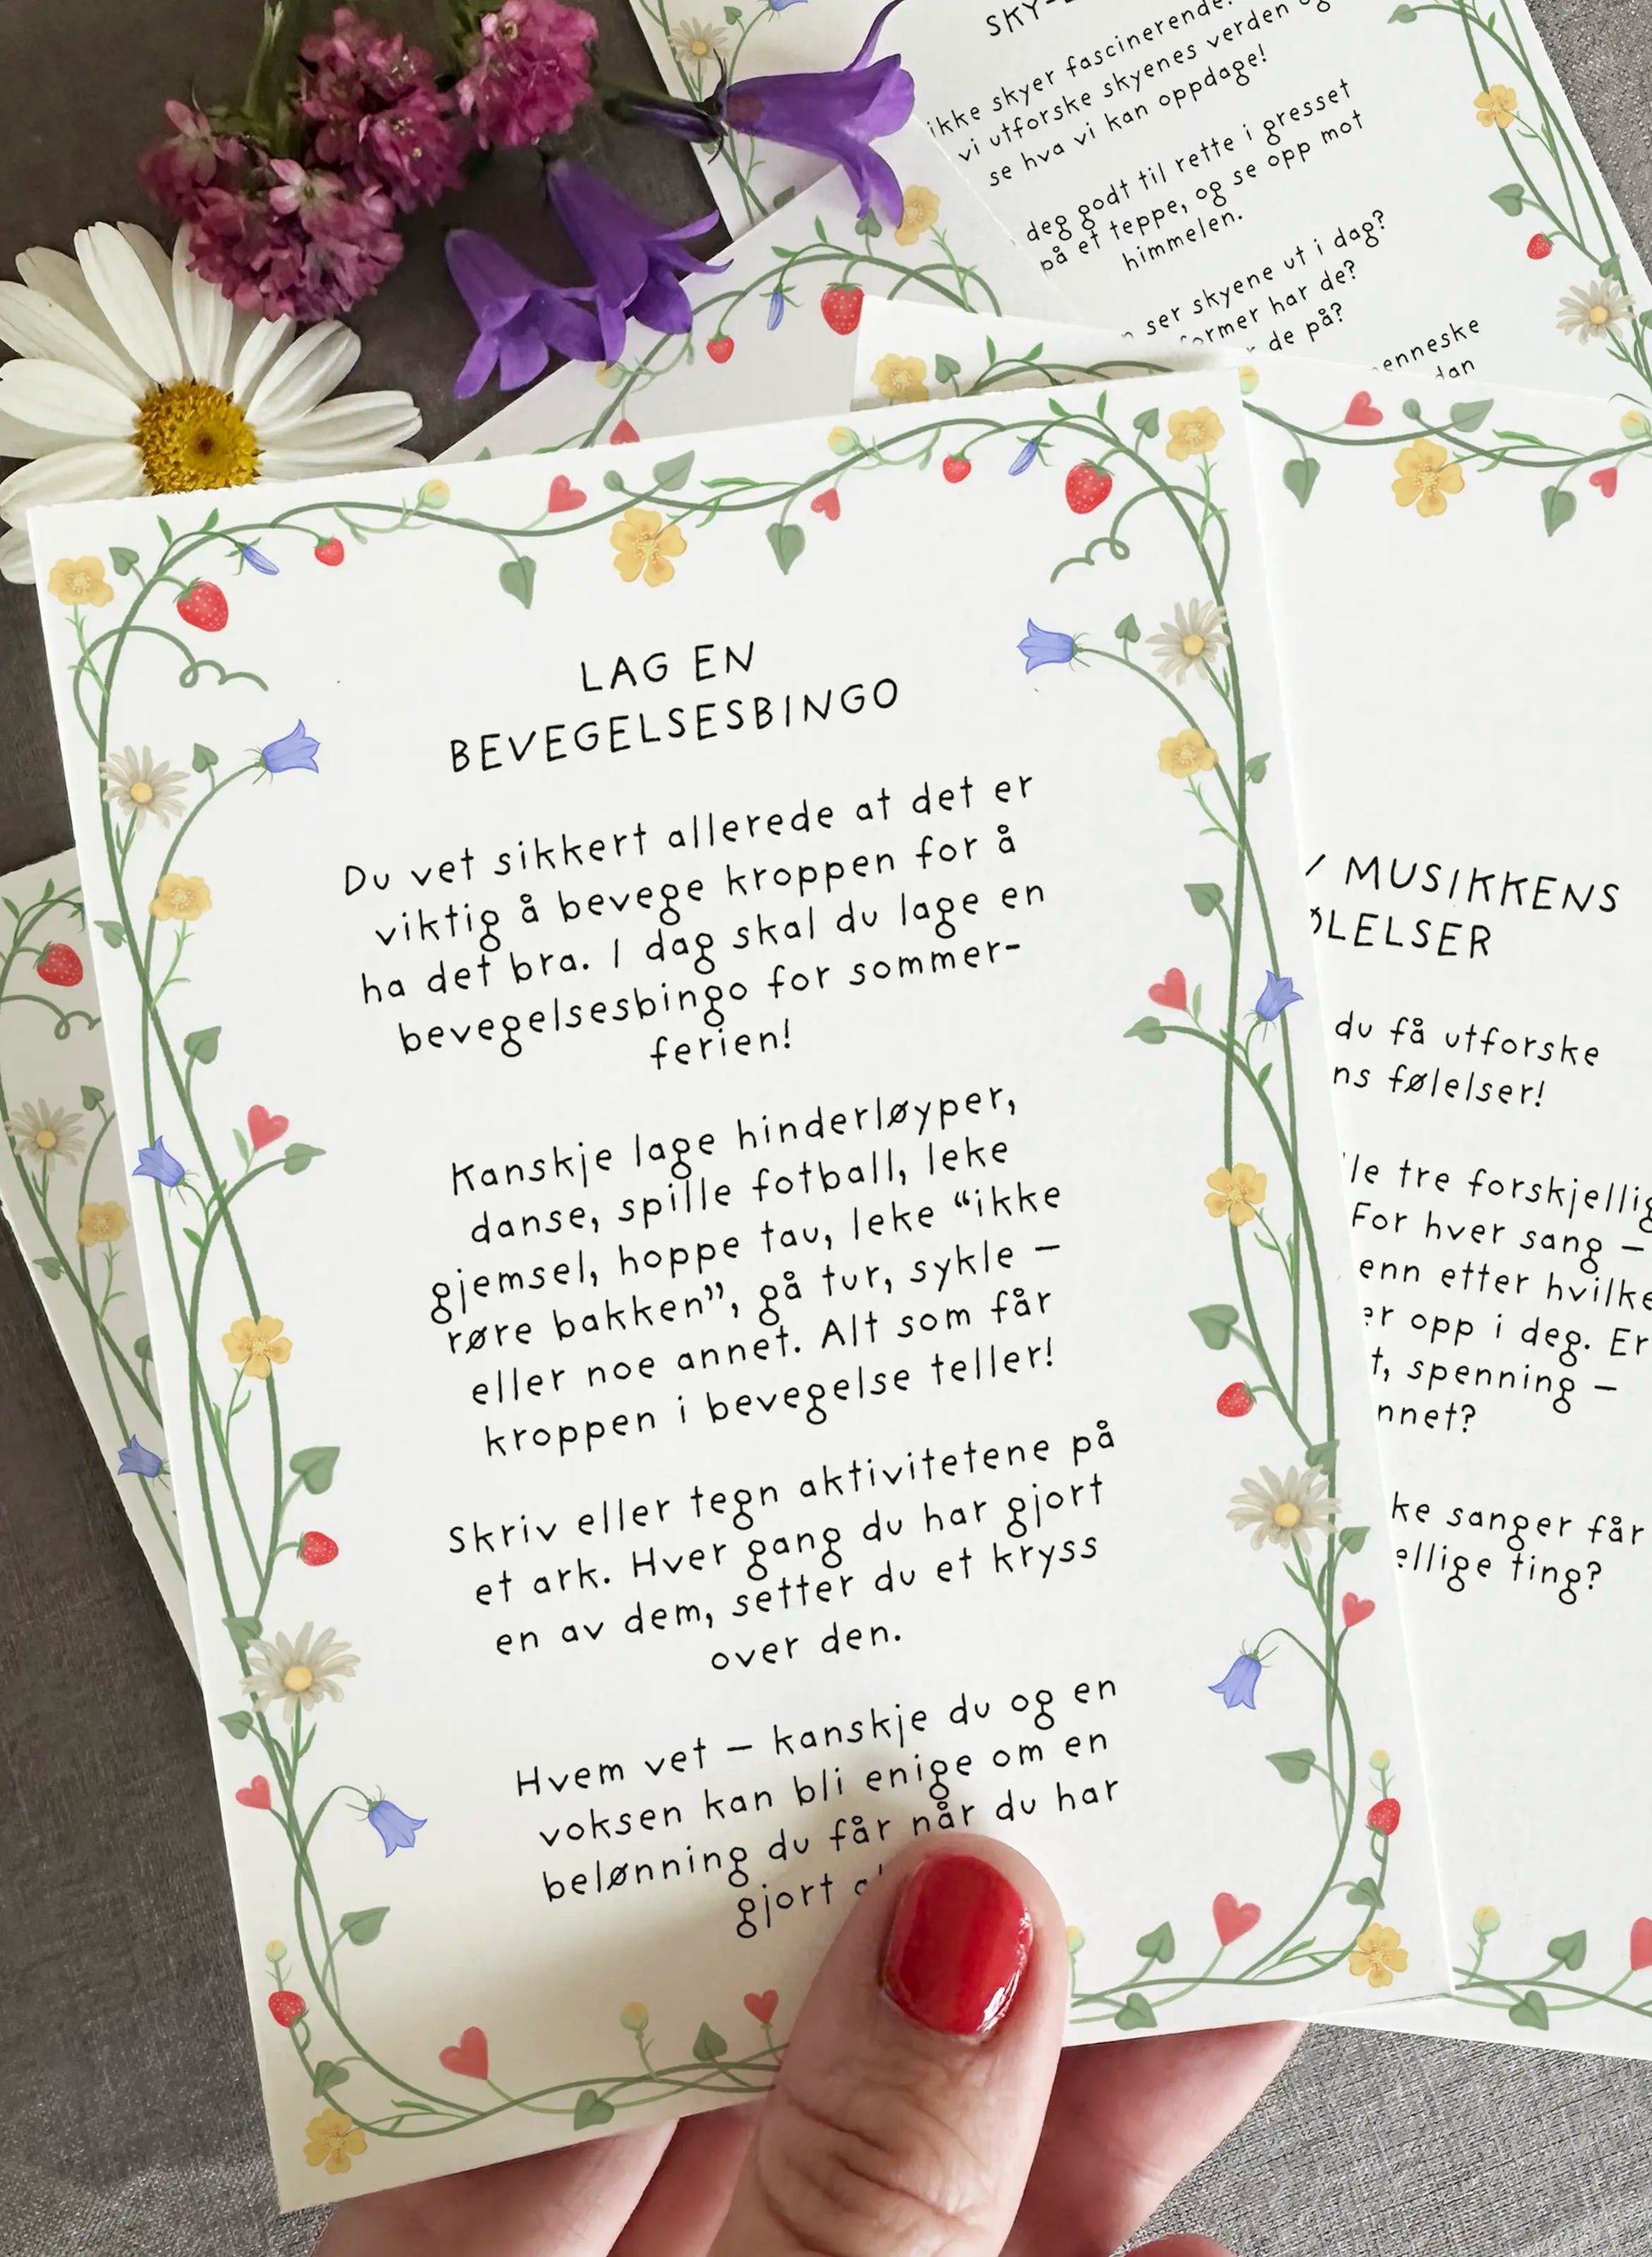 SKY-
ikke skyer fascinerende
vi utforske skyenes verden og
se hva vi kan oppdage!
deg godt til rette i gresset
på et teppe, og se opp mot
himmelen.
ser skyene ut i dag?
former har de?
de på?
LAG EN
BEVEGELSESBINGO
Du vet sikkert allerede at det er
viktig å bevege kroppen for å
ha det bra. I dag skal du lage en
bevegelsesbingo for sommer-
ferien!
Kanskje lage hinderløyper,
danse, spille fotball, leke
gjemsel, hoppe tau, leke “ikke
røre bakken”, gå tur, sykle –
eller noe annet. Alt som får
kroppen i bevegelse teller!
Skriv eller tegn aktivitetene på
et ark. Hver gang du har gjort
en av dem, setter du et kryss
over den.
Hvem vet – kanskje du og en
voksen kan bli enige om en
belønning du får når du har
gjort
MUSIKKENS
du få utforske
følelser!
tre forskjellig
For hver sang –
etter hvilke
opp i deg. Er
spenning –
sanger får
ting?